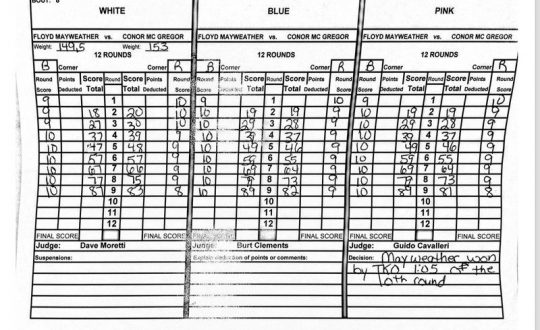 BOUT: 8
WHITE BLUE PINK
FLOYD MAYWEATHER vs. CONOR MC GREGOR FLOYD MAYWEATHER vs. CONOR MC GREGOR FLOYD MAYWEATHER vs. CONOR MC GREGOR
Weight: 149.5 Weight 153
12 ROUNDS 12 ROUNDS 12 ROUNDS
B Corner Corner R B Corner Corner R B Corner Corner R
Round Points Score Round Score Points Round Round Points Score Round Score Points Round Round Points Score Round Score Points Round
Score Deducted Total Total Deducted Score Score Deducted Total Total Deducted Score Score Deducted Total Total Deducted Score
9 1 10 9 1 10 9 1 10
9 18 2 20 10 10 19 2 19 9 10 19 2 19 9
9 27 3 30 10 10 29 3 28 9 10 29 3 28 9
10 37 4 39 9 10 39 4 37 9 10 39 4 37 9
10 47 5 48 9 10 49 5 46 9 10 49 5 46 9
10 57 6 57 9 10 59 6 55 9 10 59 6 55 9
10 67 7 66 9 10 69 7 64 9 10 69 7 64 9
10 77 8 75 9 10 79 8 73 9 10 79 8 73 9
10 87 9 83 8 10 89 9 82 9 10 89 9 81 8
10 10 10
11 11 11
12 12 12
FINAL SCORE FINAL SCORE FINAL SCORE FINAL SCORE FINAL SCORE
Judge: Dave Moretti Judge: Burt Clements Judge: Guido Cavalleri
Suspensions: Explain deduction of points or comments: Decision: Mayweather won
by TKO 1:05 of the
10th round